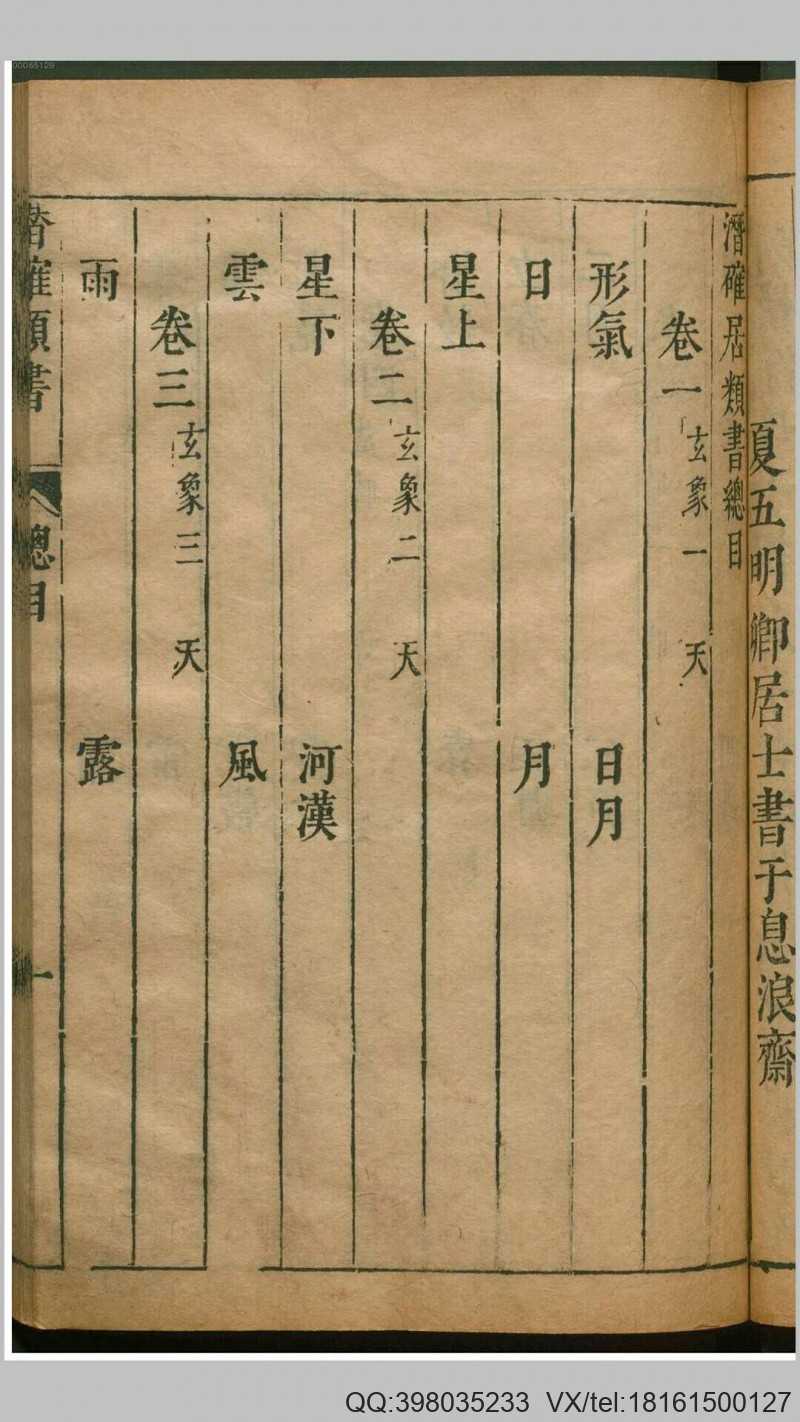 00065129
夏五明卿居士書于息浪齋
潛確居類書總目
卷一 玄象一 天
形氣 日月
日 月
星上
卷二 玄象二 天
星下 河漢
雲 風
卷三 玄象三 天
雨 露
潛確類書 總目 一
QQ:398035233 VX/tel:18161500127